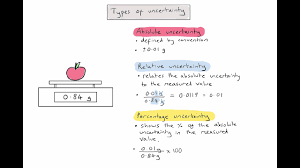 Types of uncertainty
Absolute uncertainty
• defined by convention
• ±0.01 g
Relative uncertainty
• relates the absolute uncertainty
to the measured value
0.84 g
= 0.01
Percentage uncertainty
• shows the % of the absolute
uncertainty in the measured
value.
0.01g
x 100